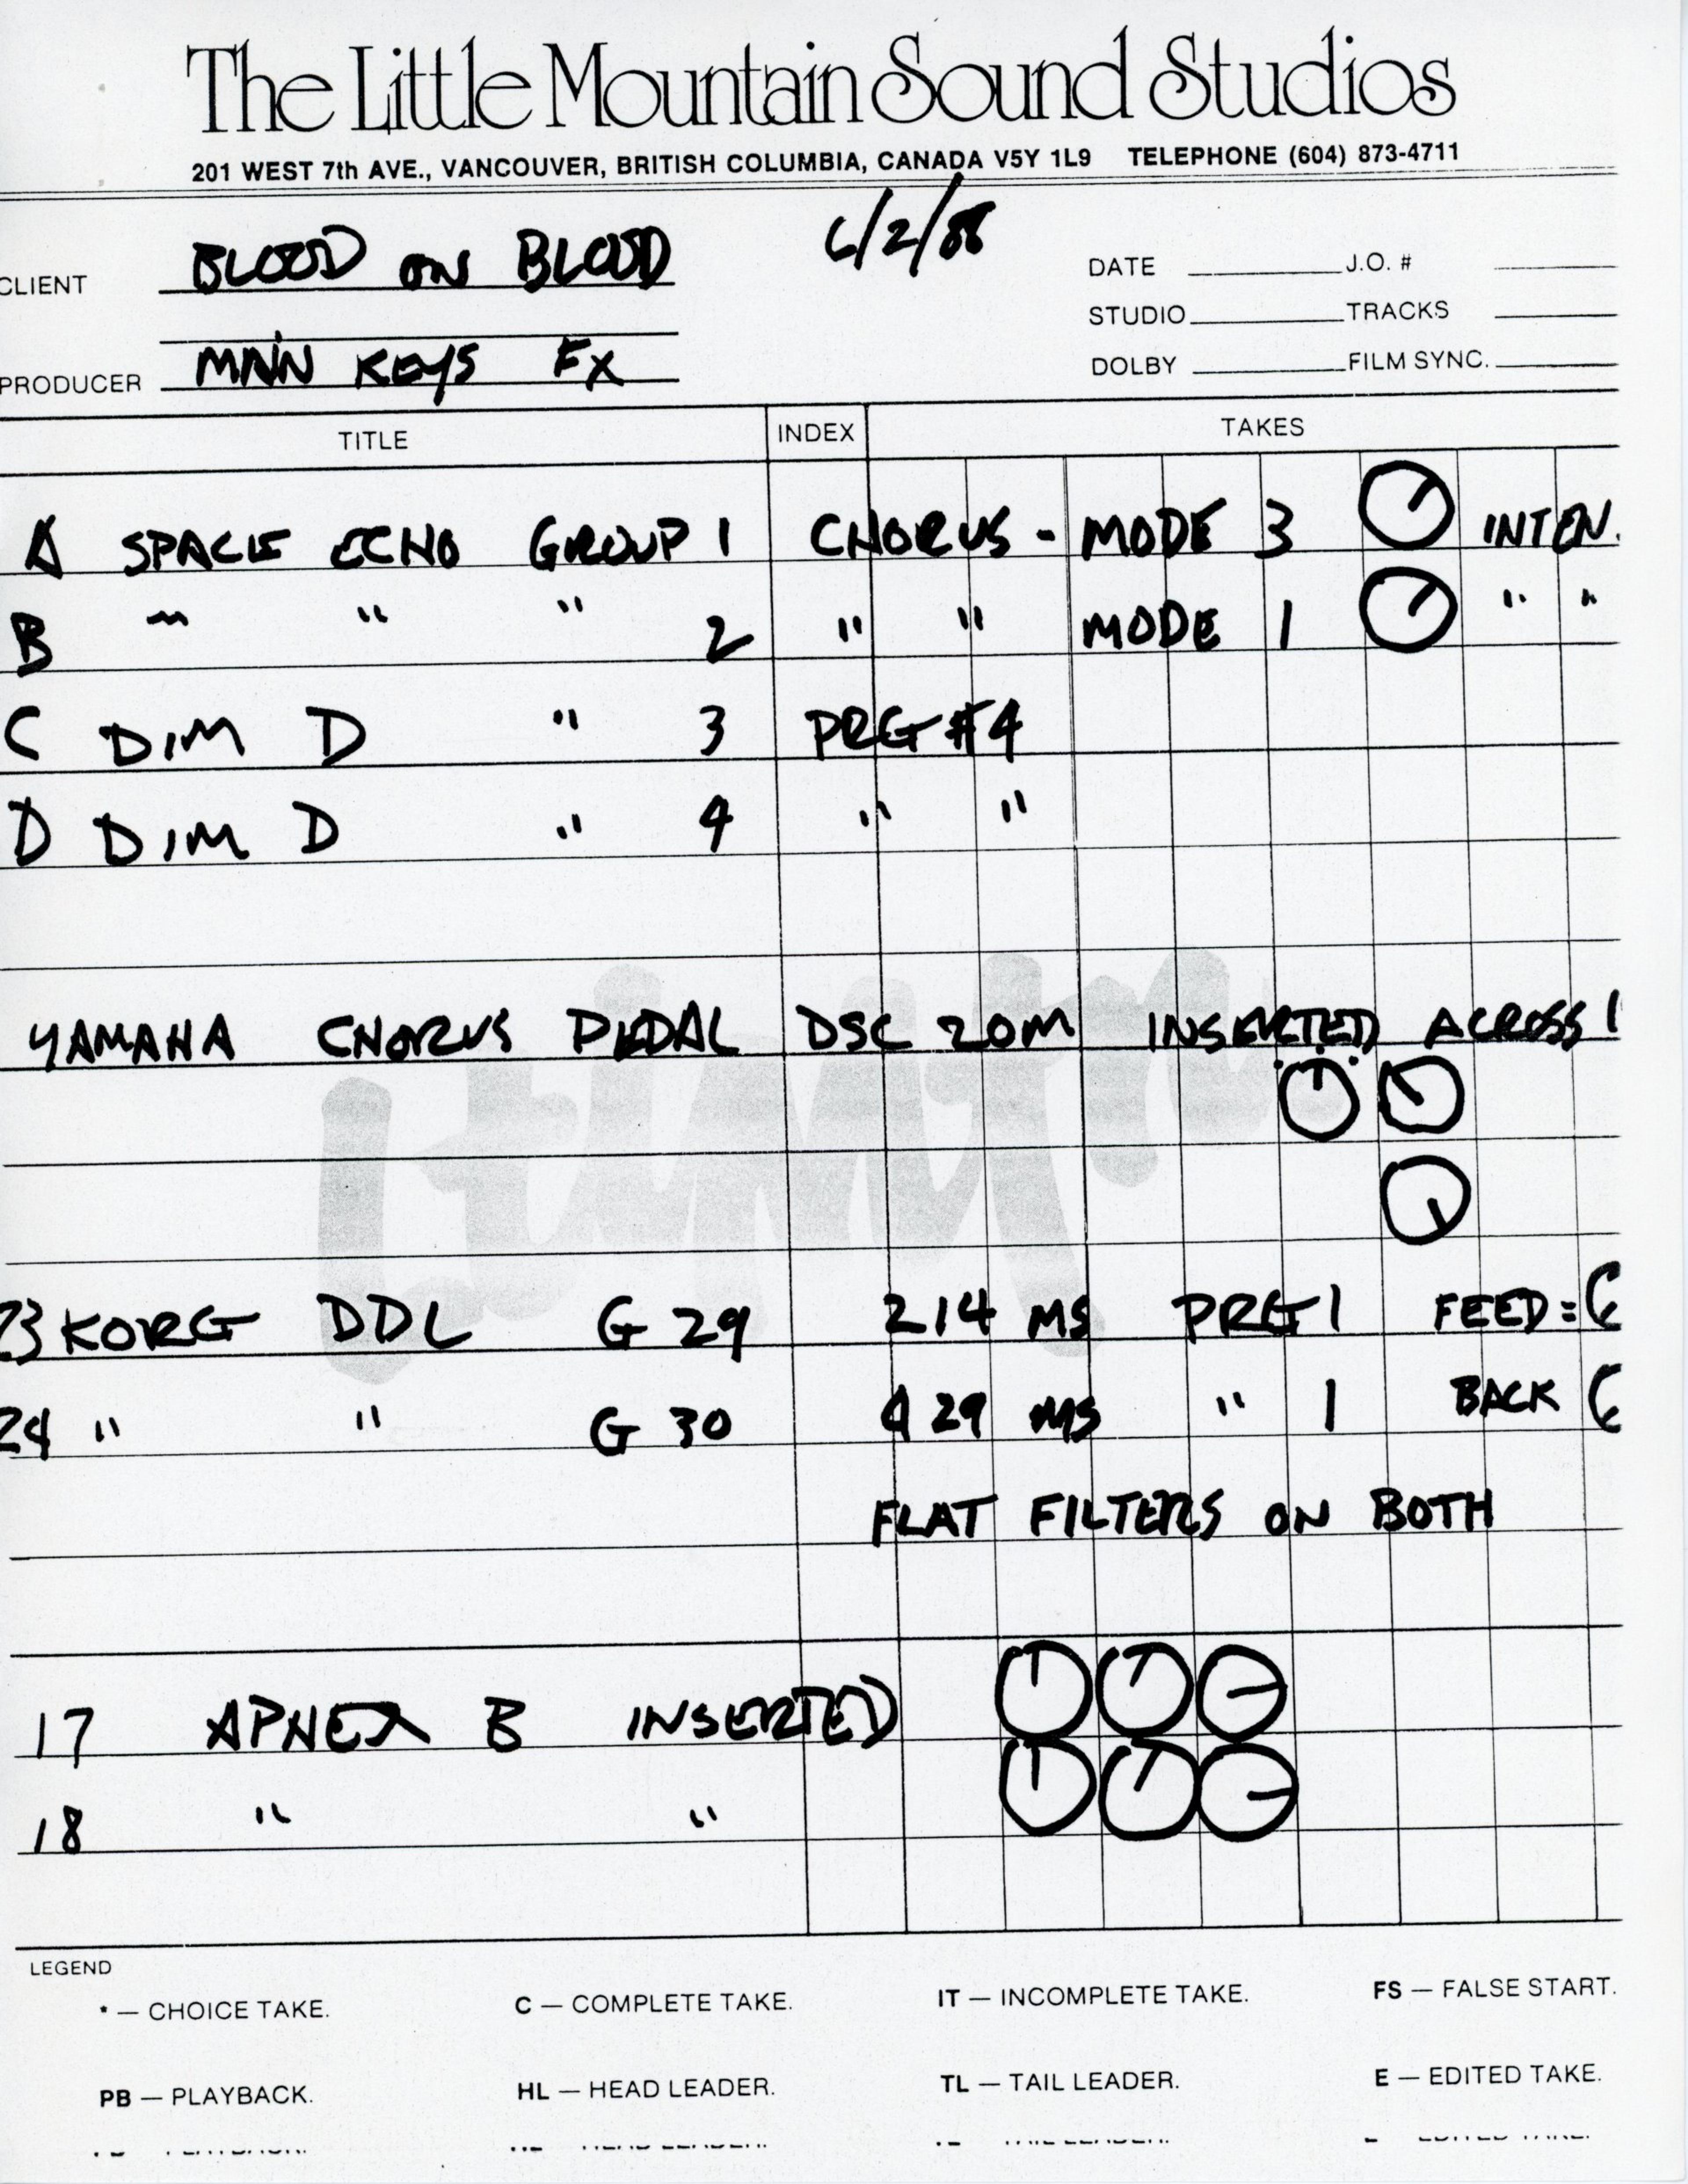 The Little Mountain Sound Studios
201 WEST 7th AVE., VANCOUVER, BRITISH COLUMBIA, CANADA V5Y 1L9 TELEPHONE (604) 873-4711
CLIENT BLOOD ON BLOOD 6/2/88
DATE J.O. #
STUDIO TRACKS
PRODUCER MAIN KEYS FX
DOLBY FILM SYNC.
TITLE INDEX TAKES
A SPACE ECHO GROUP 1 CHORUS - MODE 3 INTEN.
B " " " 2 " " MODE 1 " "
C DIM D " 3 PRG #4
D DIM D " 4 " "
YAMAHA CHORUS PEDAL DSC 20M INSERTED ACROSS
23 KORG DDL G 29 214 MS PRG 1 FEED =
24 " " G 30 429 MS " 1 BACK
FLAT FILTERS ON BOTH
17 APHEX B INSERTED
18 " "
LEGEND
* — CHOICE TAKE. C — COMPLETE TAKE. IT — INCOMPLETE TAKE. FS — FALSE START.
PB — PLAYBACK. HL — HEAD LEADER. TL — TAIL LEADER. E — EDITED TAKE.